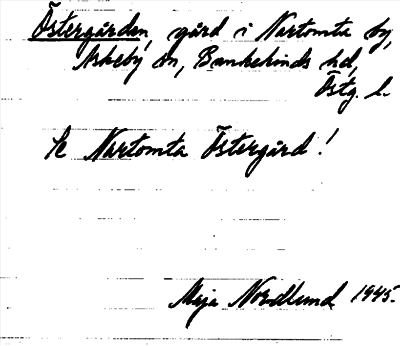 Östergården, gård i Nartomta by,
Askeby sn, Bankekinds hd,
Östg. l.
Se Nartomta Östergård!
Maja Nordlund 1945.